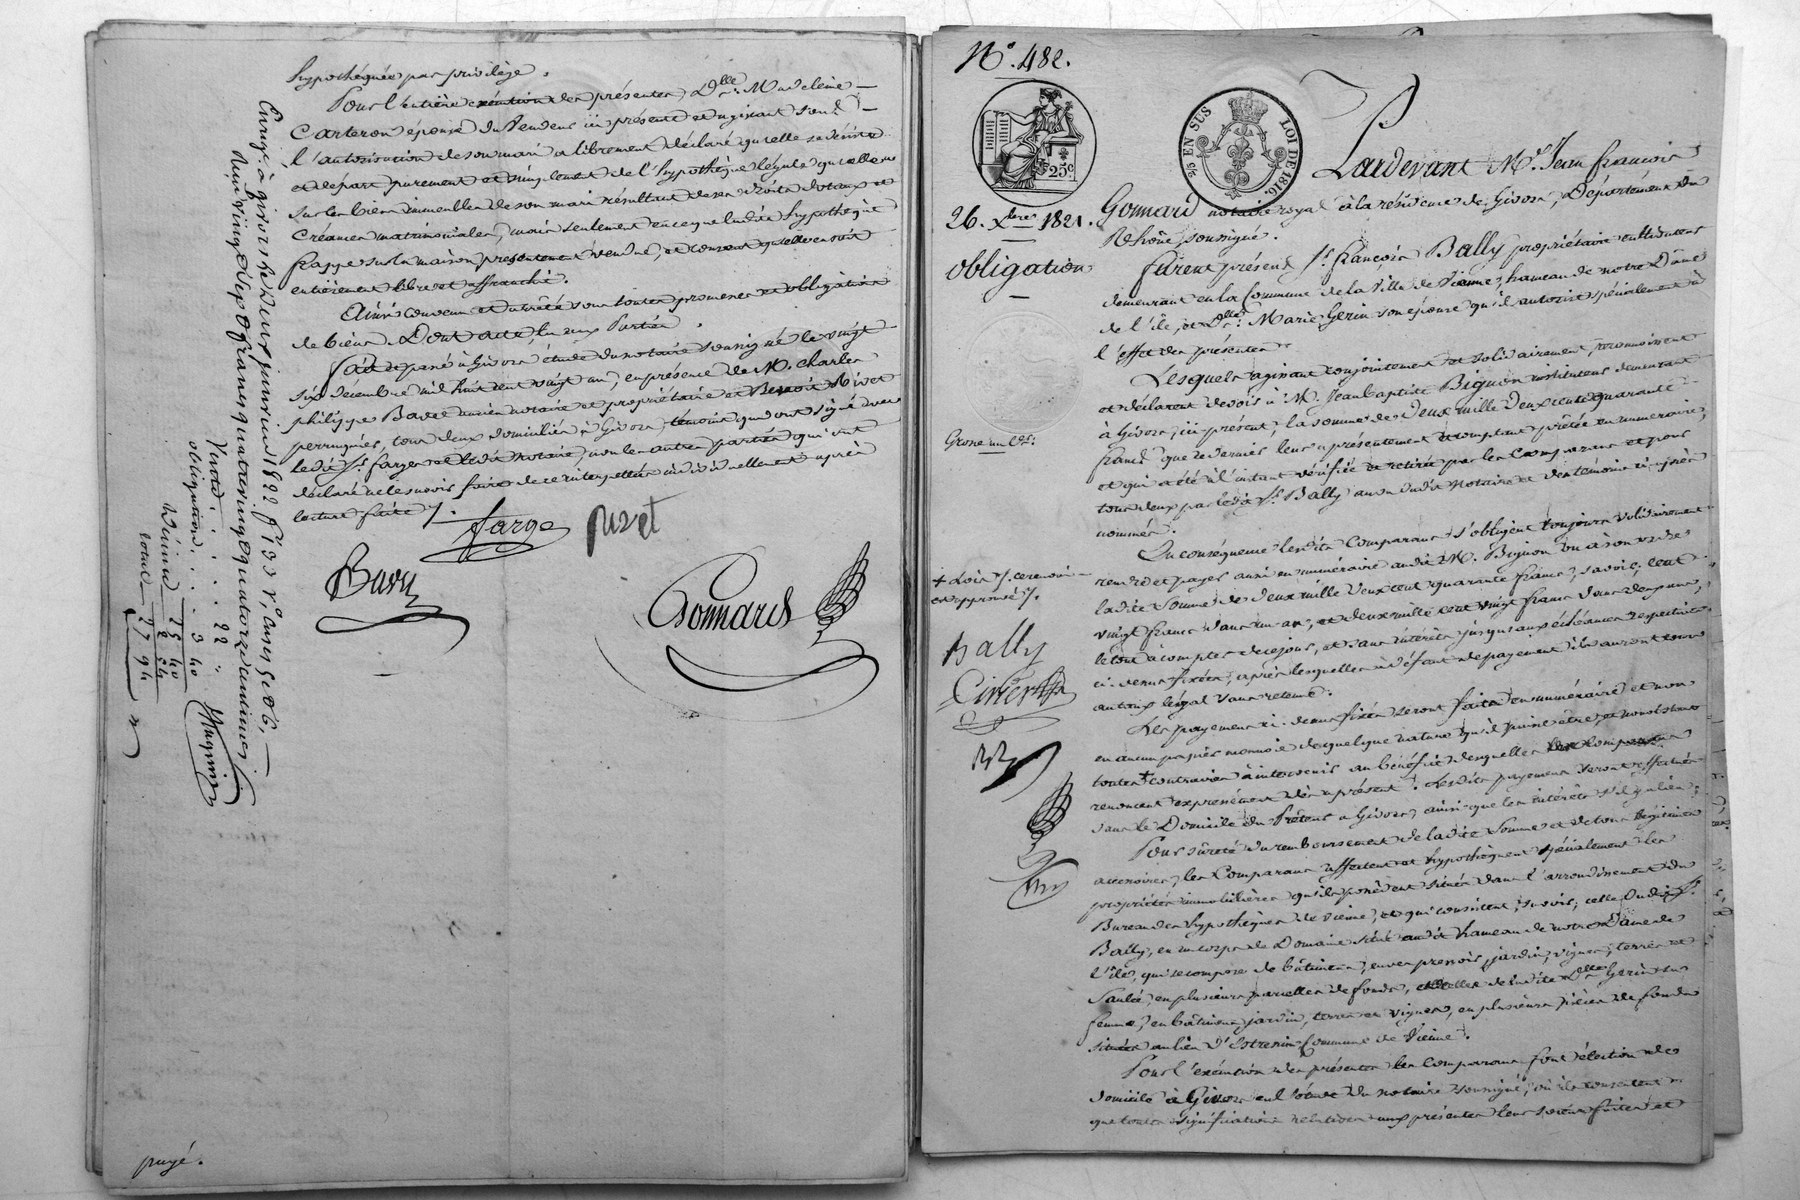 hypothéquée par privilège.
Pour l'entière exécution des présentes, Dlle Madeleine
Carteron épouse du Vendeur ici présente et agissant sous
l'autorisation de son mari a librement déclaré qu'elle se désiste
et départ purement et simplement de l'hypothèque légale qu'elle a
sur les biens immeubles de son mari résultant de ses droits dotaux et
créances matrimoniales, mais seulement en ce que ladite hypothèque
frappe sur la maison présentement vendue, et consent qu'elle en soit
entièrement libre et affranchie.
Ainsi convenu et arrêté sous toutes promesses et obligation
de biens. Dont acte, lu aux Parties.
Fait et passé à Givors étude du notaire soussigné le vingt
six décembre mil huit cent vingt un, en présence de M. Charles
philippe Bavre ancien notaire et propriétaire et Benoit Rivet
perruquier, tous deux domiciliés à Givors, témoins qui ont signé avec
ledit Sr farge et ledit notaire, non les autres parties qui ont
déclaré ne le savoir faire de ce interpellées individuellement après
lecture faite ./.
farge
rivet
Gonnard
Enreg. à givors le deux janvier 1822 f° 133 r° cases 5 et 6,
reçu vingt sept francs quatre vingt quatorze centimes
Vente . . . . 22 "
obligation . . . 3 40
25 40
Décime 2 54
total 27 94
payé.
N°. 482.
25c
2/10 EN SUS
LOI DE 1816.
26. Xbre 1821.
obligation
Grosse
Pardevant Me. Jean françois
Gonnard notaire royal à la résidence de Givors, Département du
Rhône, soussigné.
furent présens Sr. françois Bally propriétaire cultivateur
demeurant en la Commune de la Ville de Vienne, hameau de notre Dame
de l'île, et Dlle. Marie Gerin son épouse qu'il autorise spécialement à
l'effet des présentes.
Lesquels agissant conjointement et solidairement, reconnoissent
et déclarent devoir à M. Jean baptiste Bignon instituteur demeurant
à Givors, ici présent, la somme de Deux mille deux cent quarante
francs que ce dernier leur a présentement et comptant prêtée en numéraire,
et qui a été à l'instant vérifiée et retirée par les Comparans et pour
tous deux par ledit Sr. Bally au vu dudit Notaire et des témoins ci-après
nommés.
En conséquence lesdits Comparans s'obligent toujours solidairement
rendre et payer aussi en numéraire audit M. Bignon ou à son ordre
ladite somme de deux mille deux cent quarante francs, savoir, cent
vingt francs dans un an, et deux mille cent vingt francs dans deux ans,
le tout à compter de ce jour, et sans intérêts jusqu'aux échéances respectives
ci-dessus fixées, après lesquelles à défaut de payement ils auront cours
au taux légal sans retenue.
Les payemens ci-dessus fixés seront faits en numéraire et non
en aucun papier monnoie de quelque nature qu'il puisse être, et nonobstant
toutes + contraires à intervenir au bénéfice desquelles les Comparans
renoncent expressément dès à présent. Lesdits payemens seront effectués
dans le Domicile du Prêteur à Givors, ainsi que les intérêts s'il y a lieu.
Pour sûreté du remboursement de ladite somme et de tous légitimes
accessoires, les Comparans affectent et hypothèquent spécialement les
propriétés immobilières qu'ils possèdent situées dans l'arrondissement du
Bureau des hypothèques de Vienne, et qui consistent, savoir; celle dudit Sr.
Bally, en un corps de Domaine situé audit hameau de notre Dame de
l'île, qui se compose de bâtimens, cuves pressoir, jardin, vignes, terres et
Saulée, en plusieurs parcelles de fonds, et celles de ladite Dlle Gerin sa
femme, en bâtimens, jardin, terres et vignes, en plusieurs pièces de fonds
situées au lieu d'Estressin Commune de Vienne.
Pour l'exécution des présentes les Comparans font élection de
domicile à Givors en l'étude du notaire soussigné, où ils consentent
que toutes significations relatives aux présentes leur soient faites et
+ Lois ./. ce renvoi
est approuvé ./.
Bally